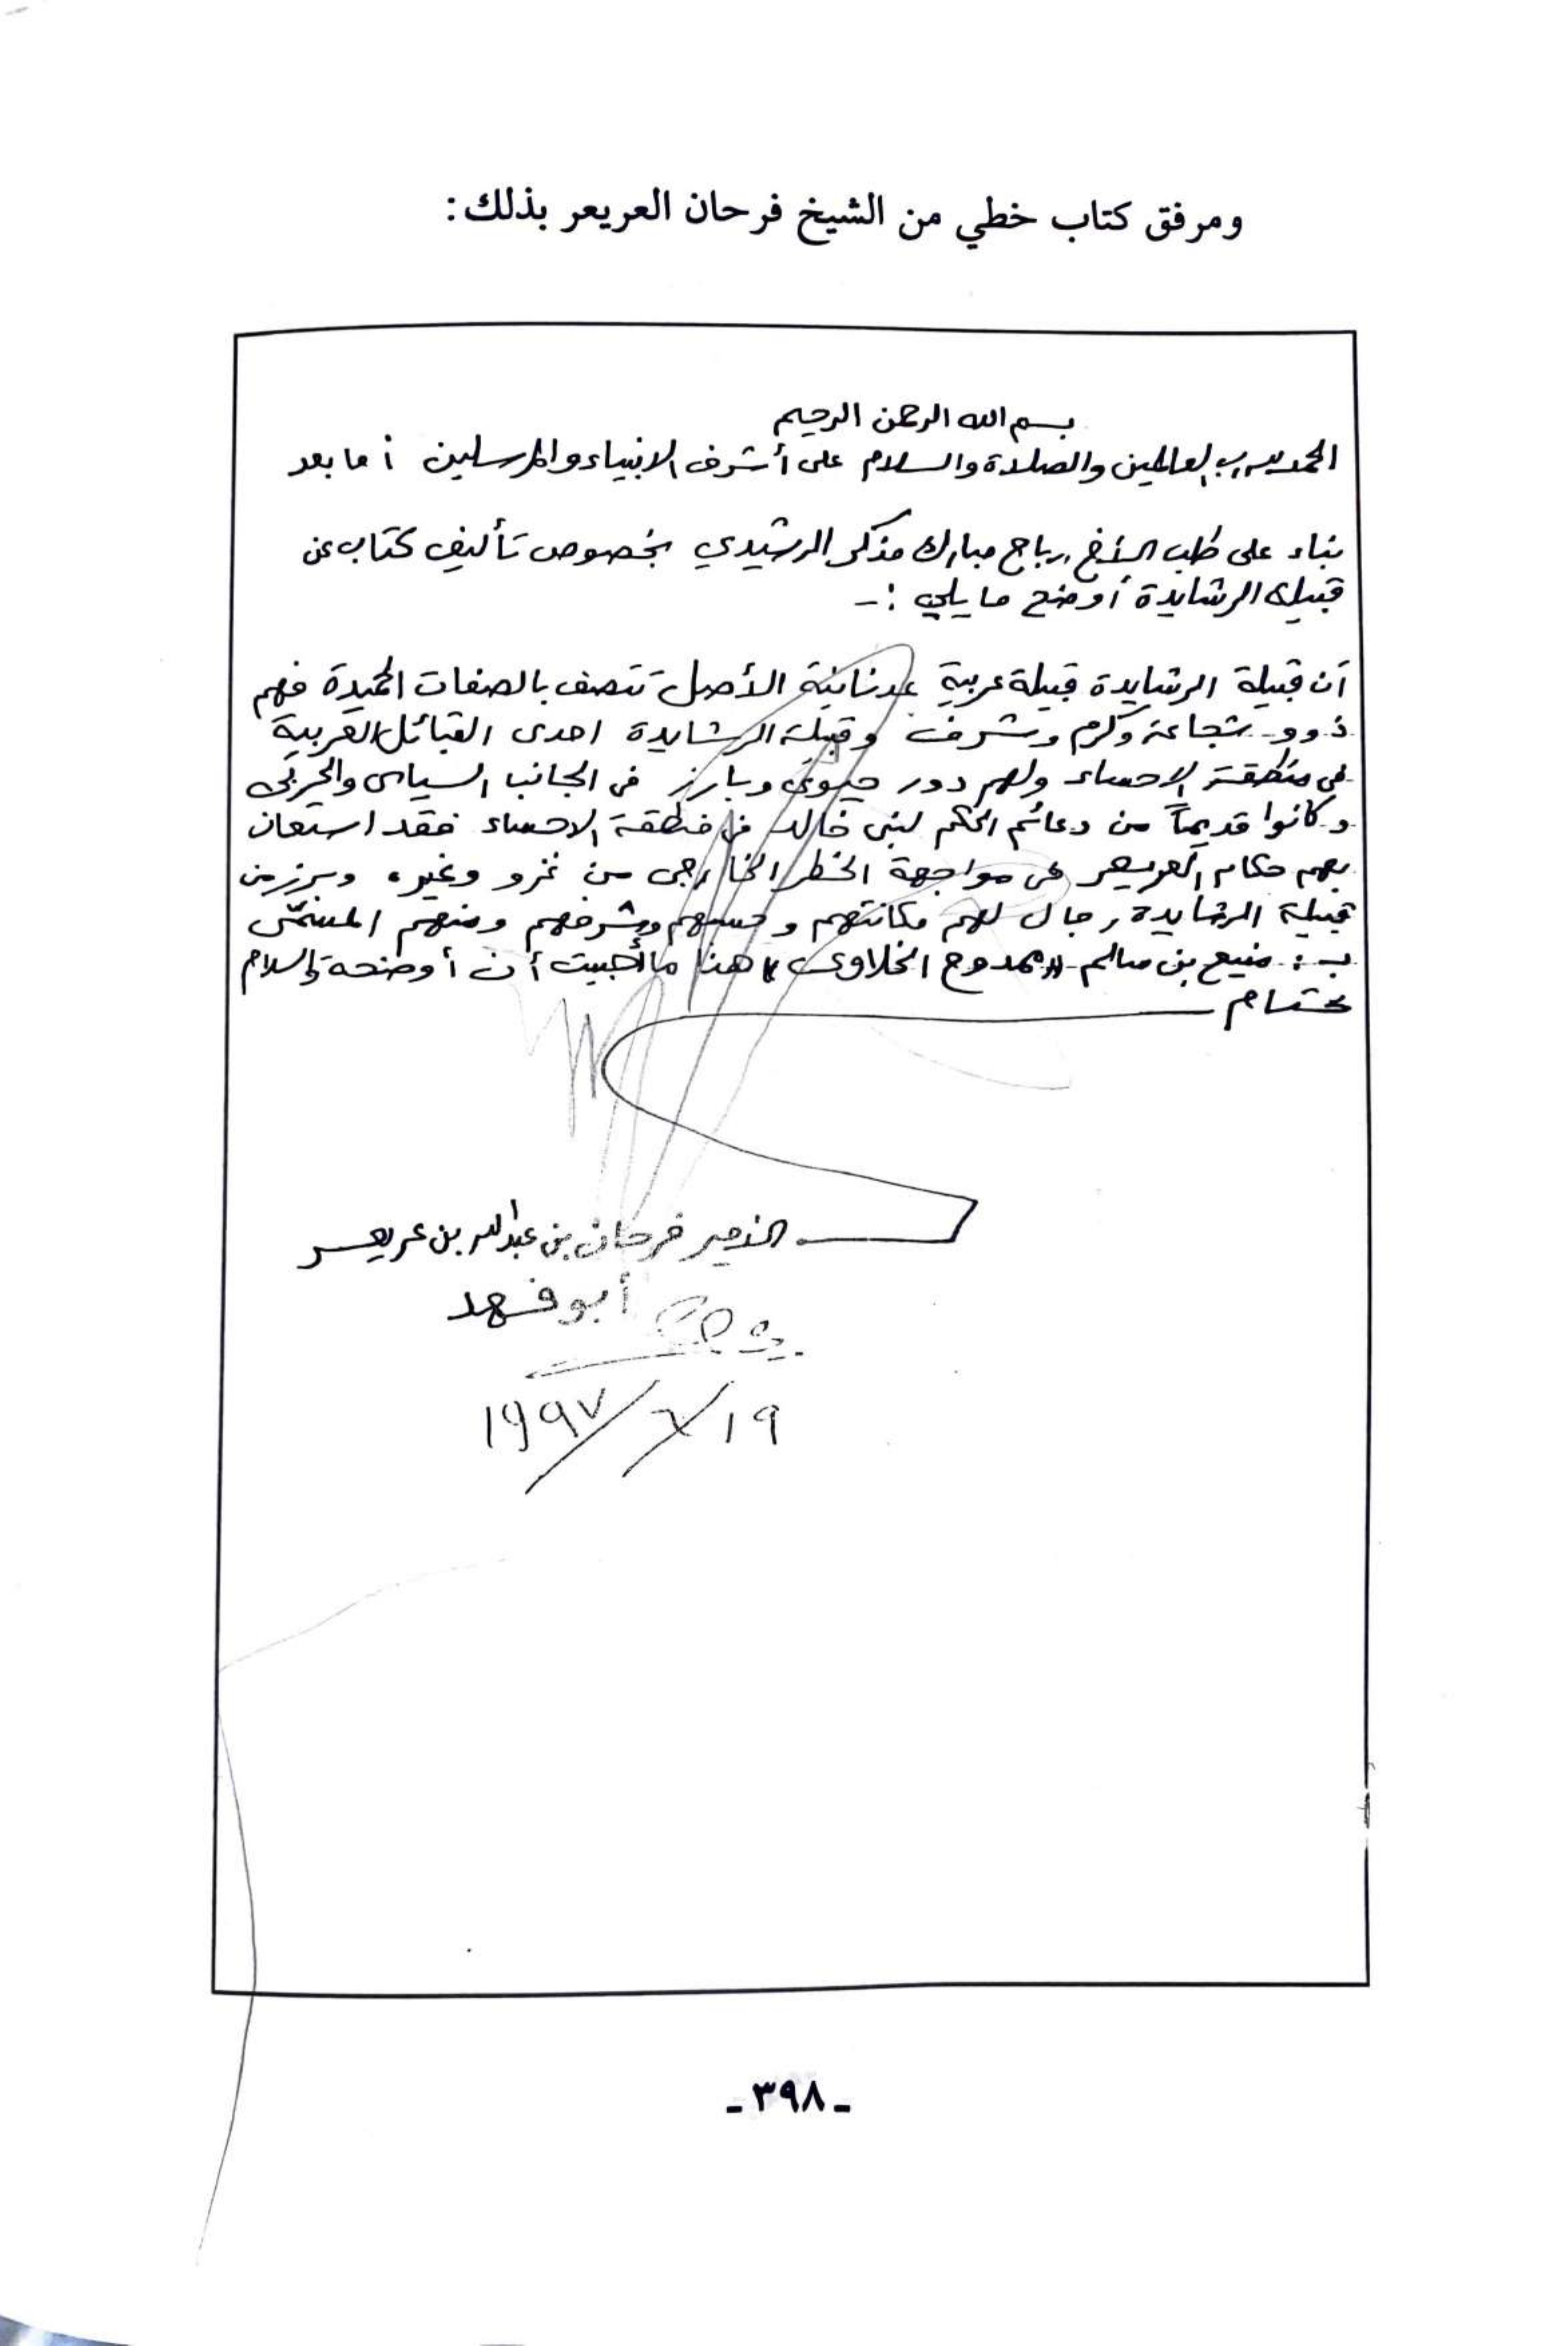 ومرفق كتاب خطي من الشيخ فرحان العريعر بذلك:
بسم الله الرحمن الرحيم
الحمد لله رب العالمين والصلاة والسلام على أشرف الانبياء والمرسلين أما بعد
بناء على طلب الأخ رباح مبارك مذكر الرشيدي بخصوص تأليف كتاب عن
قبيلة الرشايدة أوضح ما يلي :-
أن قبيلة الرشايدة قبيلة عربية عدنانية الأصل تتصف بالصفات الحميدة فهم
ذوو شجاعة وكرم وشرف وقبيلة الرشايدة احدى القبائل العربية
في منطقة الاحساء ولهم دور حيوي وبارز في الجانب السياسي والحربي
وكانوا قديماً من دعائم الحكم لبني خالد في منطقة الاحساء فقد استعان
بهم حكام العريعر في مواجهة الخطر الخارجي من غزو وغيره وبرز من
قبيلة الرشايدة رجال لهم مكانتهم وحسبهم وشرفهم ومنهم المسمى
بـ : منيع بن سالم «ممدوح الخلاوي» هذا ما أحببت أن أوضحه والسلام
ختام
الأمير فرحان بن عبدالله بن عريعر
أبو فهد
١٩٩٧/٦/١٩
ـ ٣٩٨ ـ